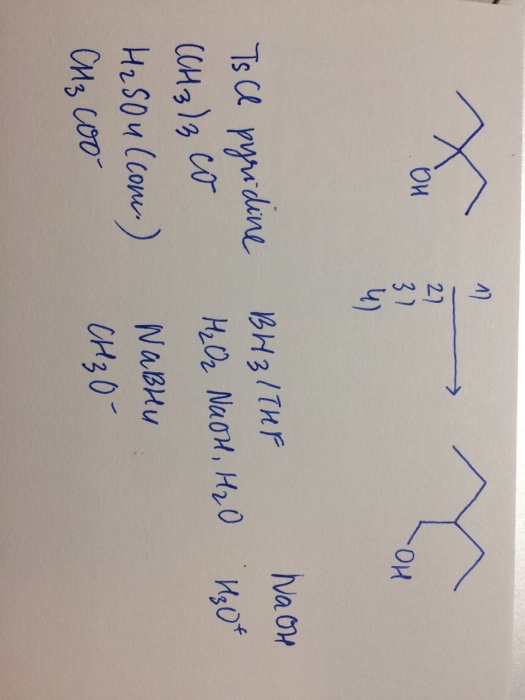 OH
1)
2)
3)
4)
OH
TsCl pyridine
(CH3)3 CO⁻
H2SO4 (conc.)
CH3COO⁻
BH3/THF
H2O2 NaOH, H2O
NaBH4
CH3O⁻
NaOH
H3O+